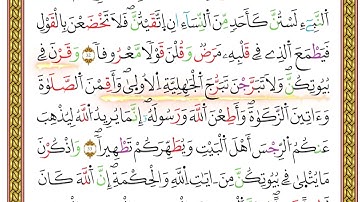 اَلنَّبِےٓءِ لَسْتُنَّ كَأَحَدٖ مِّنَ اَلنِّسَآءِ انِ اِتَّقَيْتُنَّۖ فَلَا تَخْضَعْنَ بِالْقَوْلِ
فَيَطْمَعَ اَلذِے فِے قَلْبِهِۦ مَرَضٞۖ وَقُلْنَ قَوْلاٗ مَّعْرُوفاٗۖ وَقَرْنَ فِے
بُيُوتِكُنَّۖ وَلَا تَبَرَّجْنَ تَبَرُّجَ اَلْجَٰهِلِيَّةِ اِلُاولَىٰۖ وَأَقِمْنَ اَلصَّلَوٰةَ
وَءَاتِينَ اَلزَّكَوٰةَۖ وَأَطِعْنَ اَللَّهَ وَرَسُولَهُۥٓۖ إِنَّمَا يُرِيدُ اُللَّهُ لِيُذْهِبَ
عَنكُمُ اُلرِّجْسَ أَهْلَ اَلْبَيْتِ وَيُطَهِّرَكُمْ تَطْهِيراٗۖ وَاذْكُرْنَ
مَا يُتْلَىٰ فِے بُيُوتِكُنَّ مِنَ ايَٰتِ اِللَّهِ وَالْحِكْمَةِۖ إِنَّ اَللَّهَ كَانَ